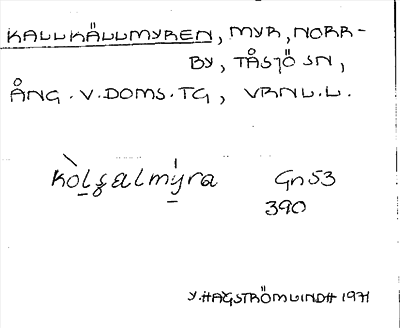 KALLKÄLLMYREN, MYR, NORR-
BY, TÅSJÖ SN,
ÅNG. V. DOMS. TG, VRNL. L.
kòl̲ʂalmýra Gn 53
390
Y. HÄGSTRÖM LINDH 1971